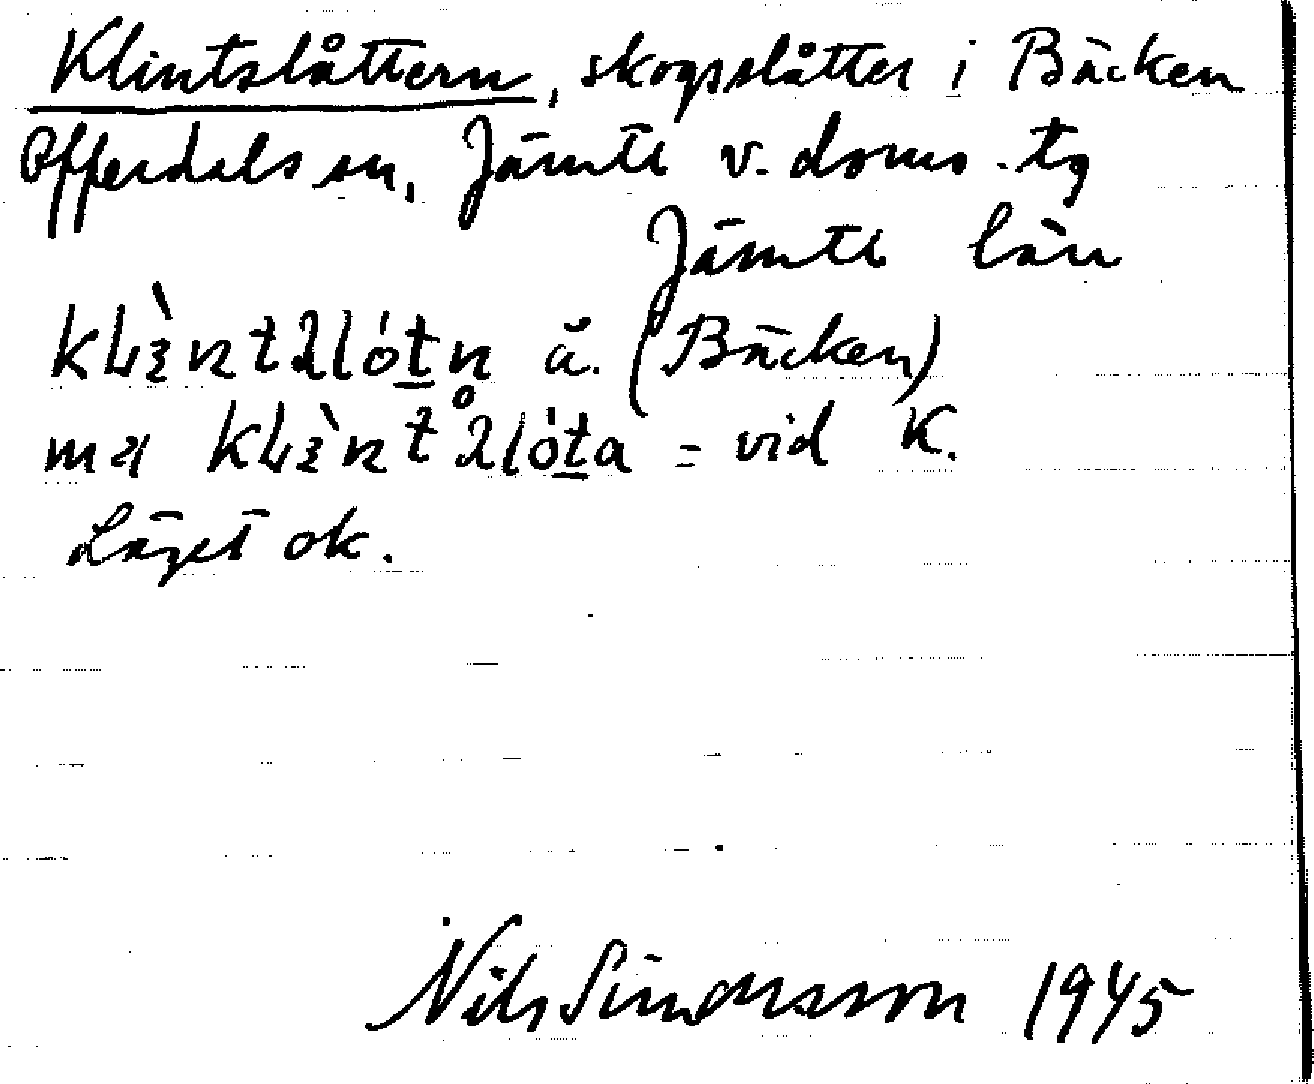 Klintslåttern, skogsslåtter i Bäcken
Offerdals sn, Jämtl v. doms.-tg
Jämtl län
ä. (Bäcken)
= vid K.
Läget ok.
Nils Simonsson 1945